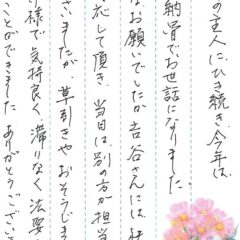 の主人に、ひき続き、今年は、
納骨でお世話になりました。
なお願いでしたが吉谷さんには、
応して頂き、当日は、別の方が担当
ざいましたが、草引きやおそうじま
げ様で気持良く、滞りなく法要
ことができました ありがとうござい